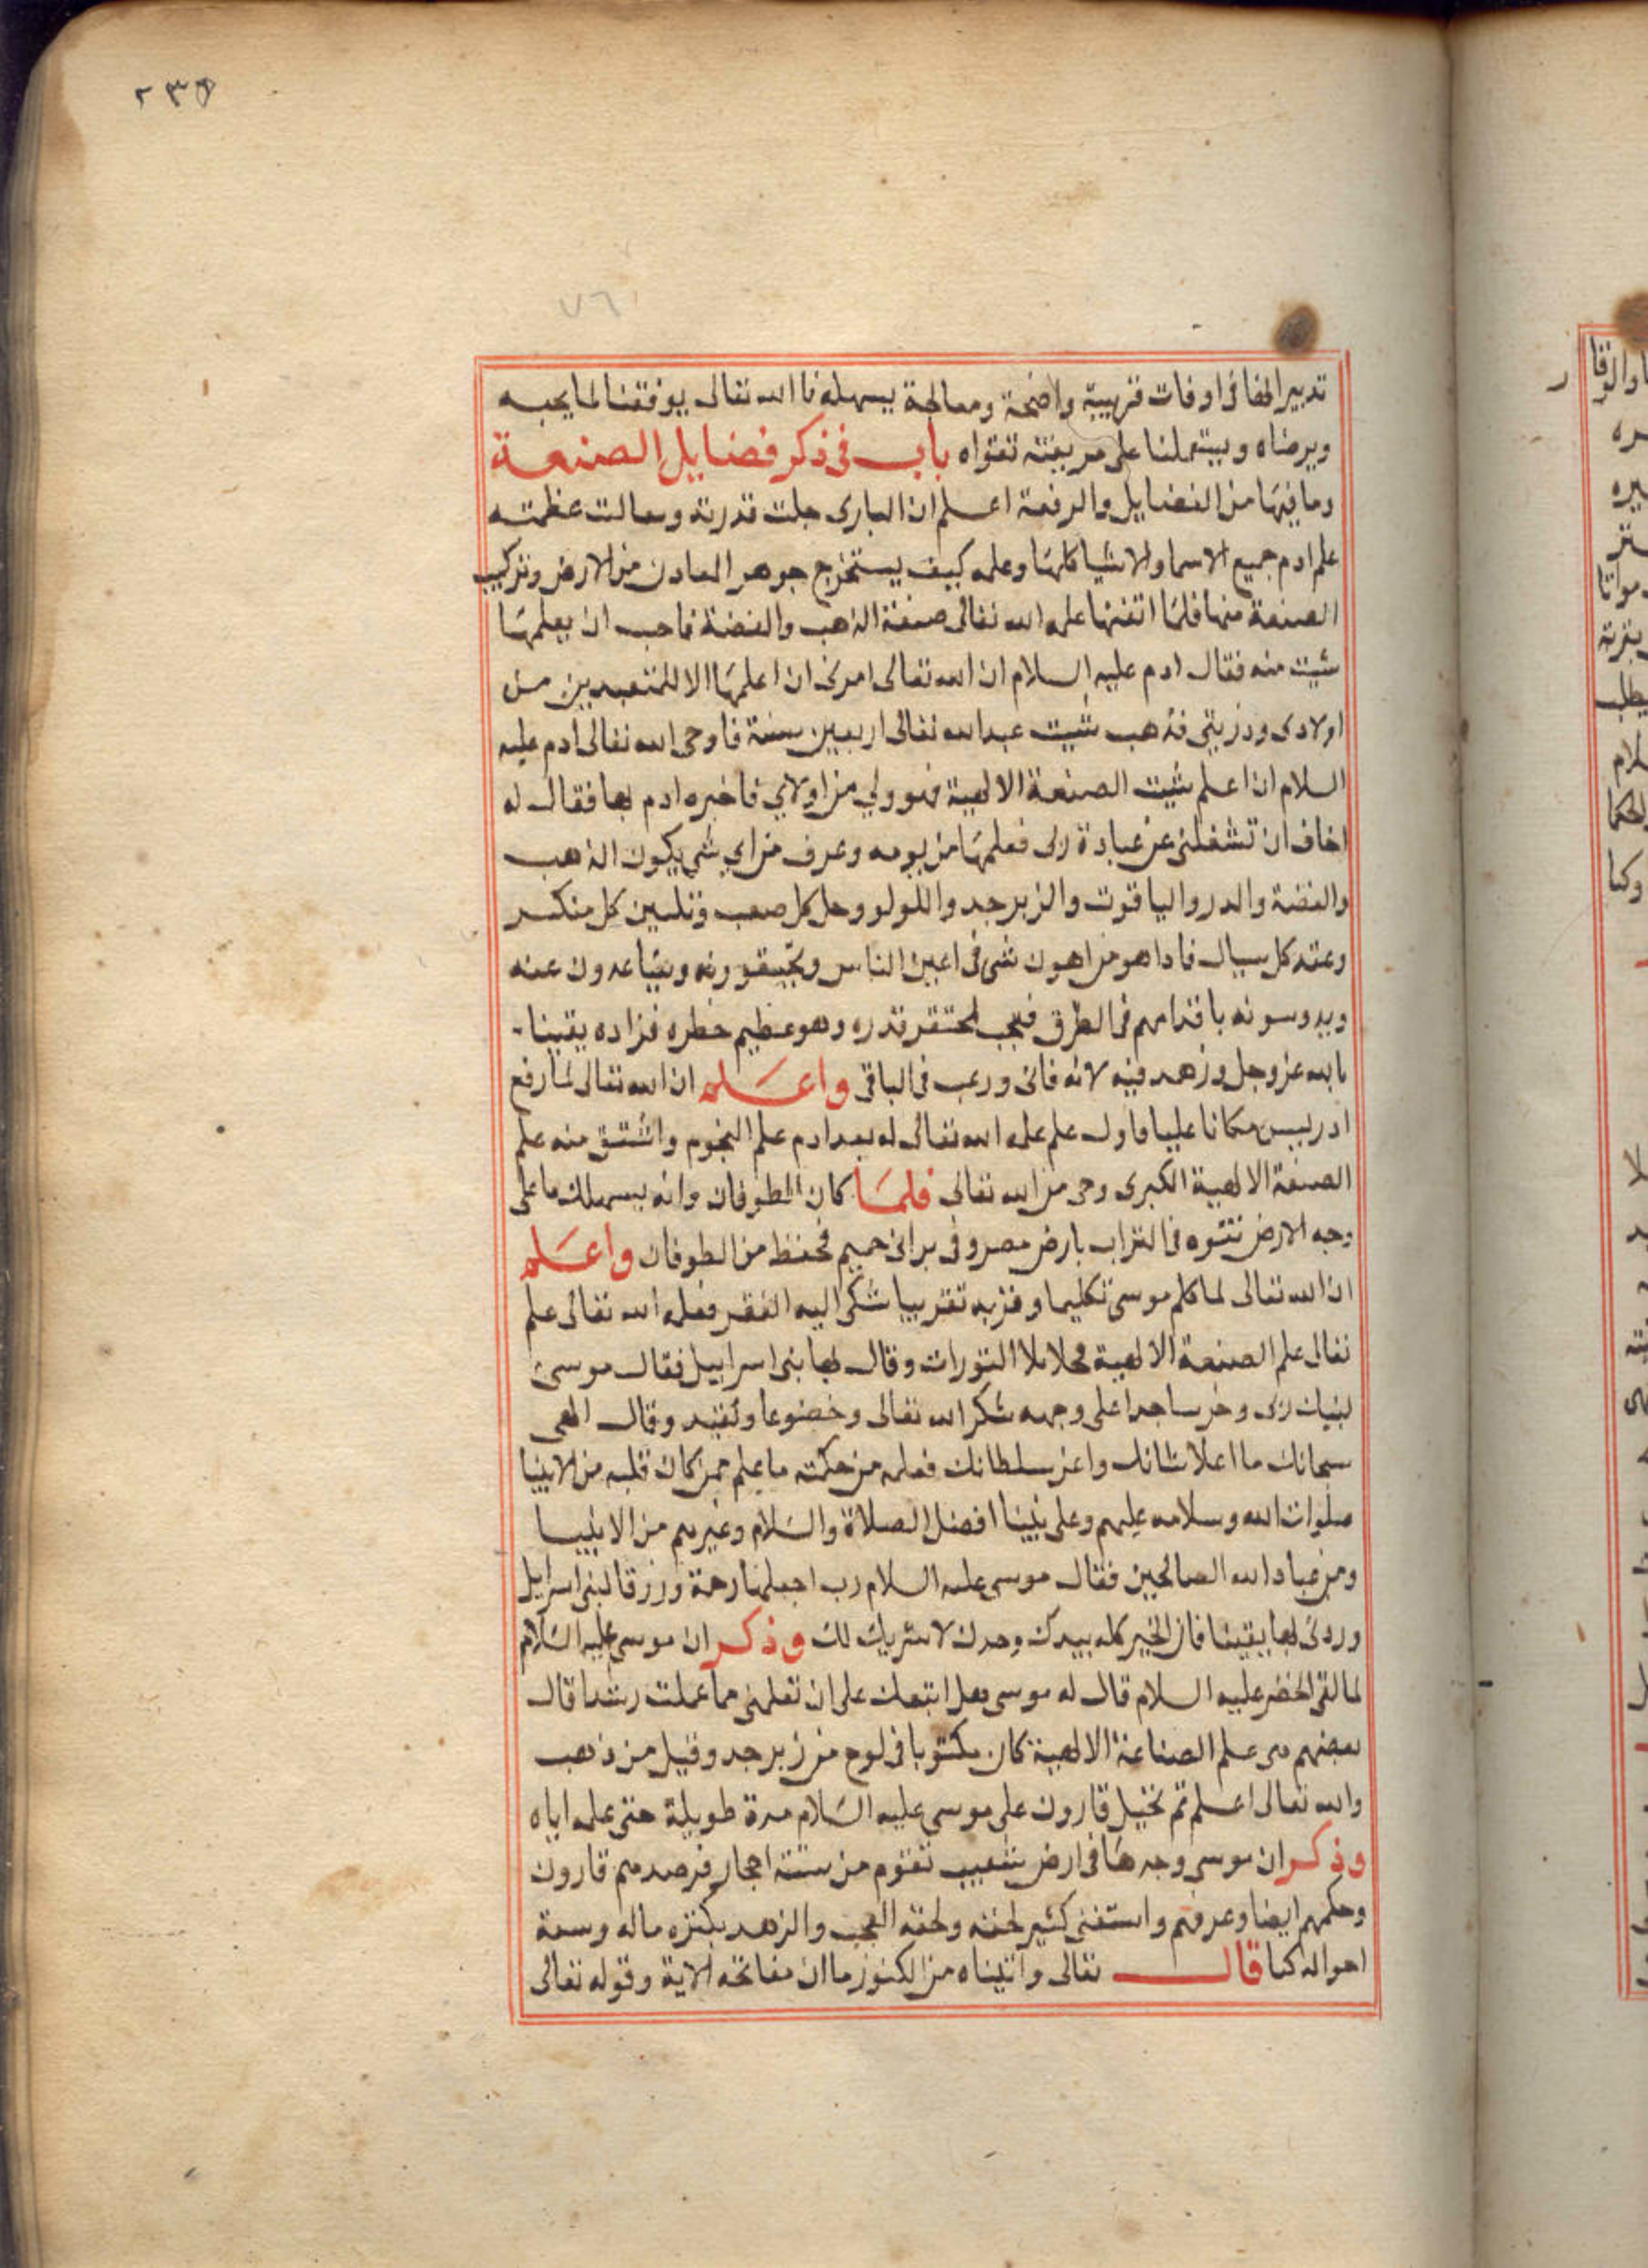 ٢٣٦
٧٦
تدبير الحفا فى اوقات قريبة واضحة ومعالجة يسهله فا الله تعالى يوفقنا لما يحبه
ويرضاه ويستعملنا على تقواه باب فى ذكر فضايل الصنعة
وما فيها من الفضايل والرفعة اعلم ان البارى جلت قدرته وتعالت عظمته
علم ادم جميع الاسما والاشيا كلها وعلمه كيف يستخرج جوهر المعادن من الارض وتركيب
الصنعة منها فلما اتقنها علمه الله تعالى صنعة الذهب والفضة فاحب ان يعلمها
شيت منه فقال ادم عليه السلام ان الله تعالى امرنى ان اعلمها الا للمتعبدين من
اولادى وذريتى فذهب شيت عبد الله تعالى اربعين سنة فاوحى الله تعالى ادم عليه
السلام ان اعلم شيت الصنعة الالهية فهو ولي من اوليائي فاخبره ادم بها فقال له
اخاف ان تشغلنى عن عبادة ربى فعلمها من يومه وعرف من اي شي يكون الذهب
والفضة والدر والياقوت والزبرجد واللولو وحل كل صعب وتليين كل منكسر
وعقد كل سيال فاذا هو من اهون شى فى اعين الناس ويتباعدون عنه
ويدوسونه باقدامهم فى الطرق فعجب لمحتقر قدره وهو عظيم خطره فزاده يقينا
بالله عز وجل وزهد فيه لانه فانى ورغب فى الباقى واعلم ان الله تعالى لما رفع
ادريس مكانا عليا فاول علم علمه الله تعالى له بعد ادم علم النجوم واشتق منه علم
الصنعة الالهية الكبرى وحى من الله تعالى فلما كان الطوفان وانه يسهلك ما على
وجه الارض فى التراب بارض مصر وفى برانى حميم فحفظ من الطوفان واعلم
ان الله تعالى لما كلم موسى تكليما وقربه تقريبا شكى اليه الفقر فعلمه الله تعالى علم
تعالى علم الصنعة الالهية التورات وقال بها بنى اسراييل فقال موسى
ربى وخر ساجدا على وجهه شكر الله تعالى وخضوعا وقال الهى
سبحانك ما اعلا شانك واعز سلطانك فعلمه من حكمته ما علم من كان قبله من الانبيا
صلوات الله وسلامه عليهم وعلى نبينا افضل الصلاة والسلام وغيرهم من الانبيا
ومن عباد الله الصالحين فقال موسى عليه السلام رب اجعلها رحمة ورزقا لبنى اسرايل
وزدنى بها يقينا فان الخير كله بيدك وحدك لا شريك لك وذكر ان موسى عليه السلام
لما لقى الخضر عليه السلام قال له موسى هل اتبعك على ان تعلمنى مما علمت رشدا قال
بعضهم هى علم الصناعة الالهية كان مكتوبا فى لوح من زبرجد وقيل من ذهب
والله تعالى اعلم ثم تخيل قارون على موسى عليه السلام مدة طويلة حتى علمه اياه
وذكر ان موسى وجدها فى ارض شعيب تقوم من ستة احجار فرصدهم قارون
وحكمهم ايضا وعرفهم واستغنى كثير ولحقه العجب والزهد بكنزه ماله وسعة
احواله كما قال تعالى واتيناه من الكنوز ما ان مفاتحه الاية وقوله تعالى